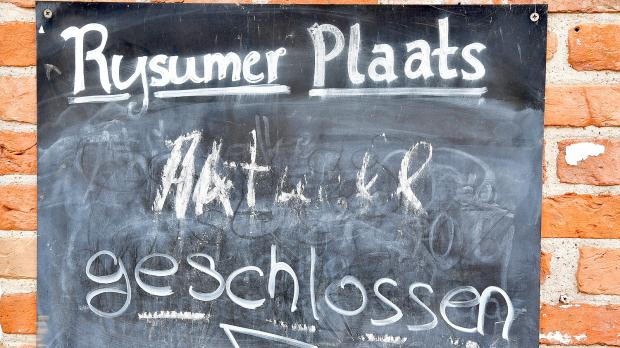 Rysumer Plaats
Aktuell
geschlossen